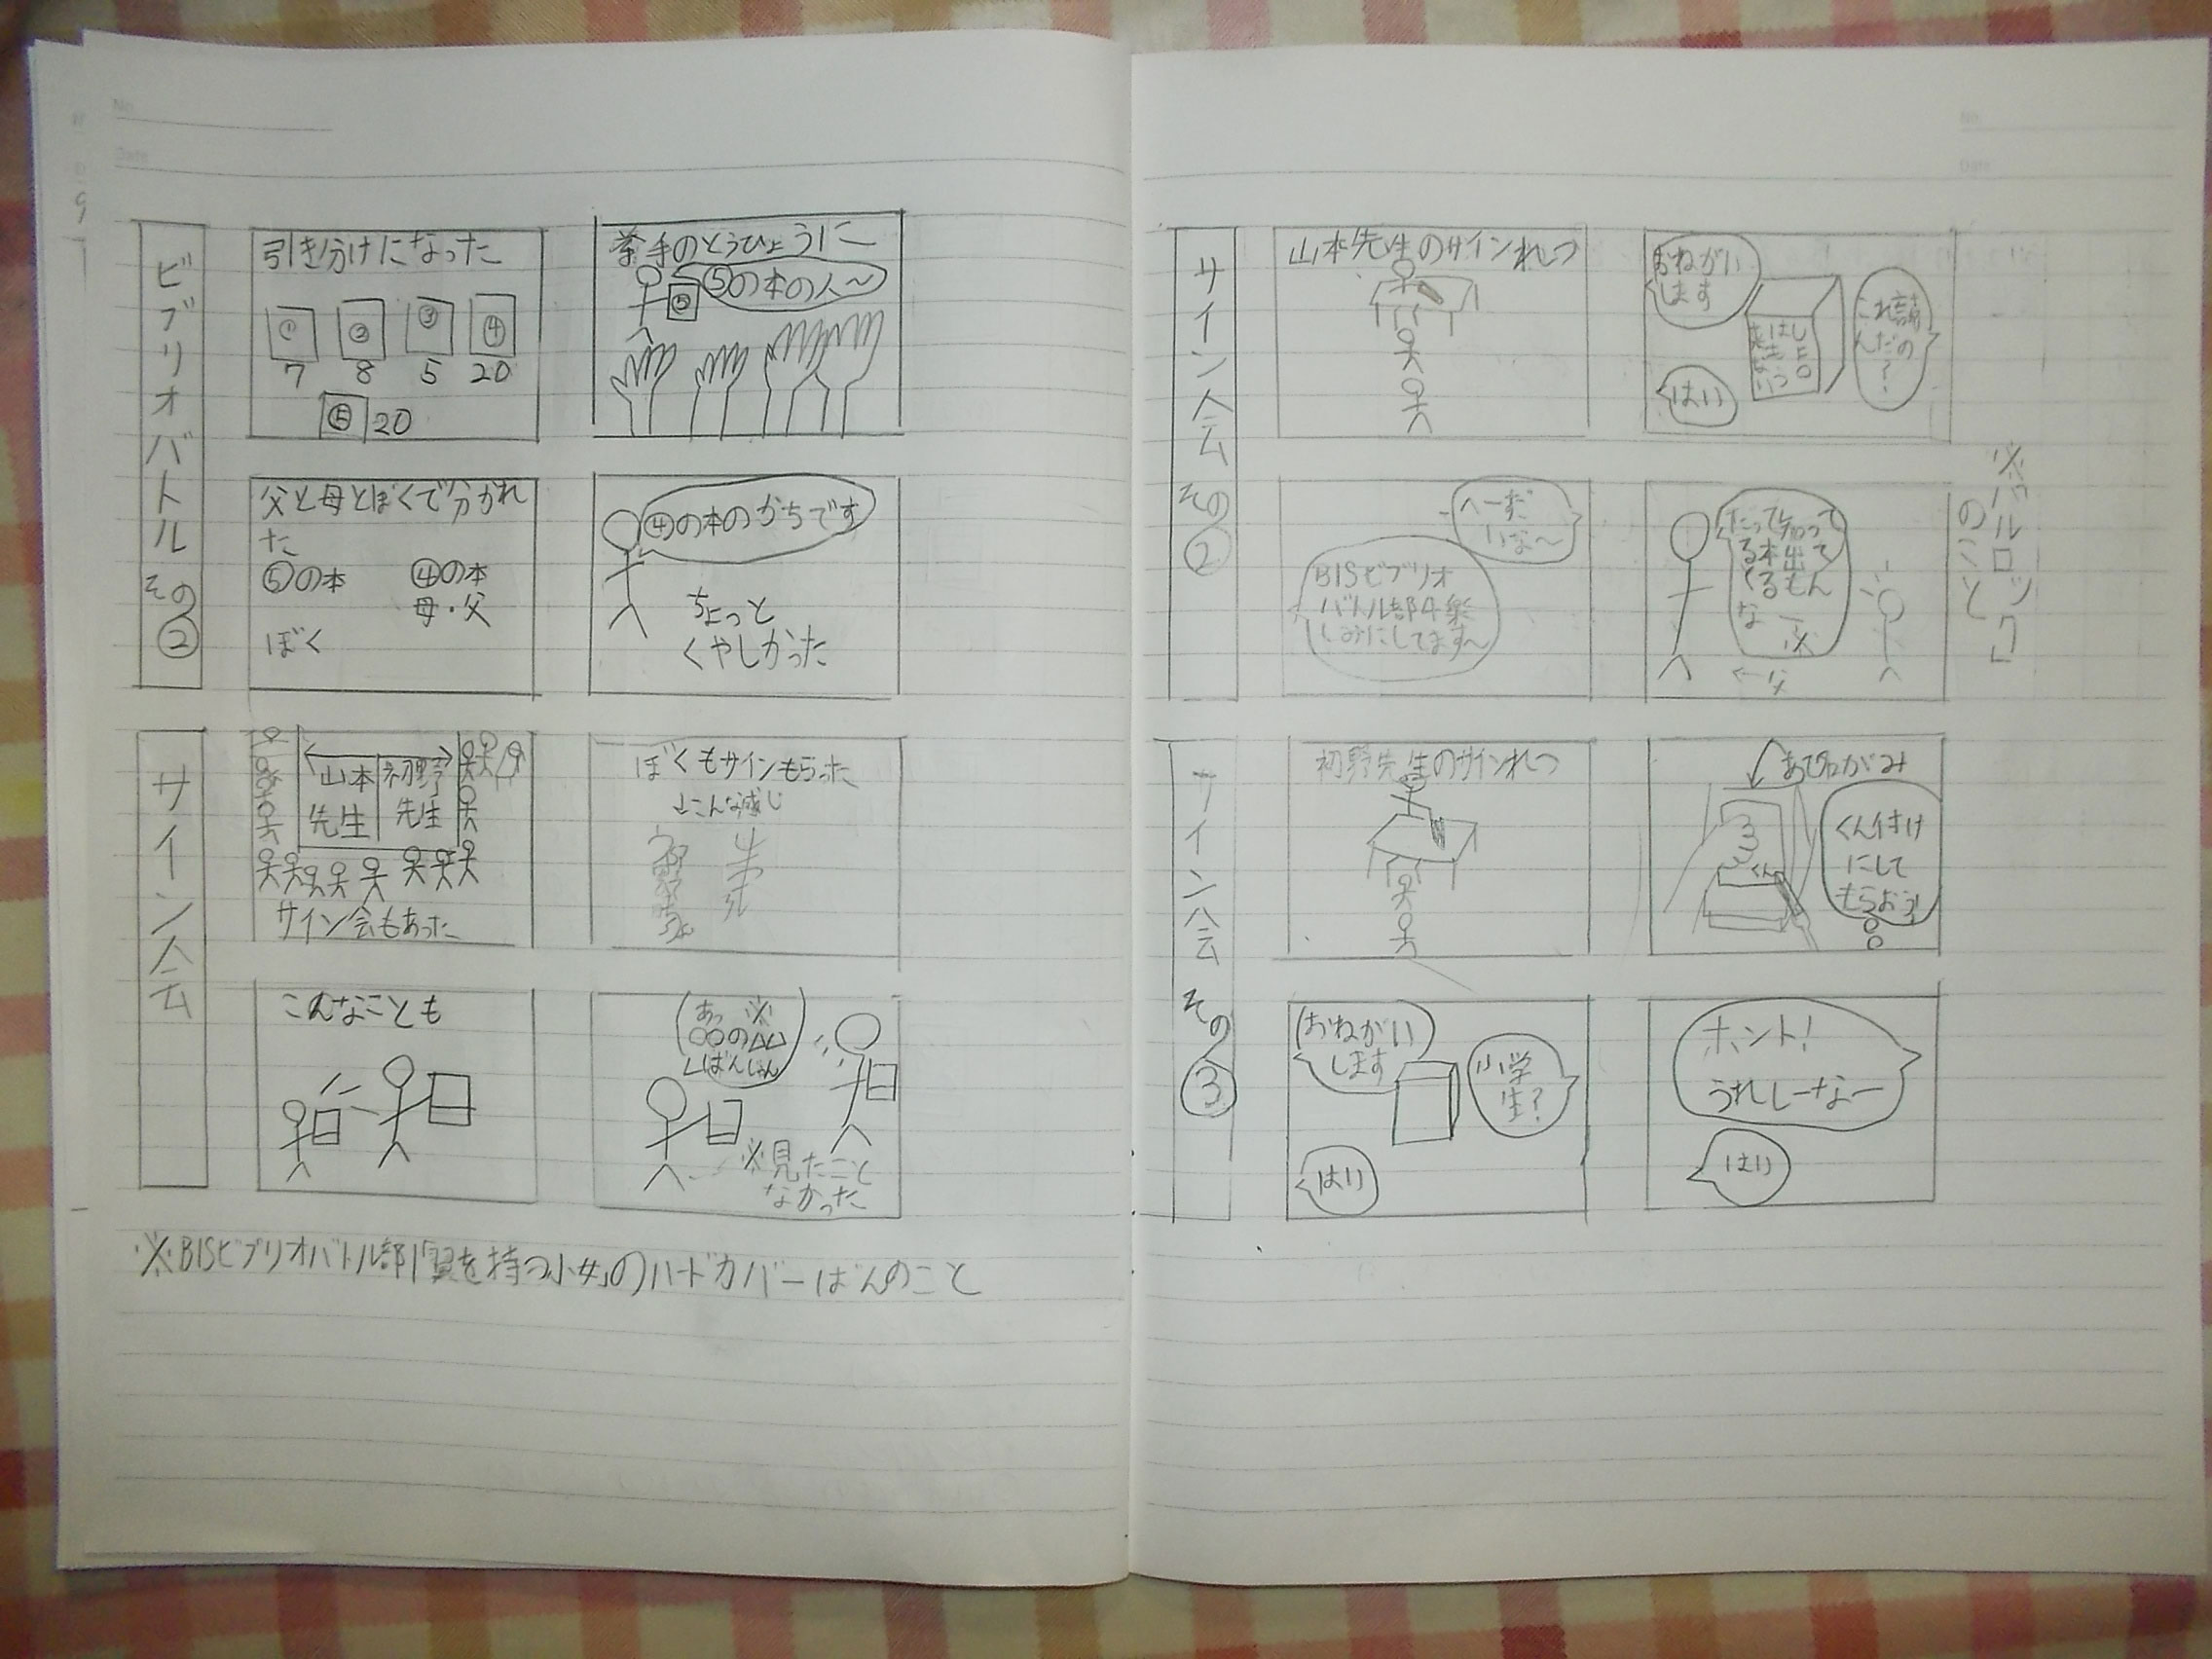 No.
Date
ビブリオバトル その②
引き分けになった
① ② ③ ④
7 8 5 20
⑤ 20
挙手のとうひょうに
⑤の本の人〜
⑤
父と母とぼくで分かれ
た
⑤の本 ④の本
母・父
ぼく
④の本のかちです
ちょっと
くやしかった
サイン会
山本
先生
初野
先生
サイン会もあった
ぼくもサインもらった
↓こんな感じ
こんなことも
あっ ※
○○の△△
ばんじゃん
※見たこと
なかった
※BISビブリオバトル部「翼を持つ少女」のハードカバーばんのこと
No.
Date
サイン会 その②
山本先生のサインれつ
おねがい
します
これ読
んだの
?
はい
へーだ
いな〜
BISビブリオ
バトル部4楽
しみにしてます〜
だって知って
る本出て
くるもん
な
※
←父
※「バルロック」
のこと
サイン会 その③
初野先生のサインれつ
くん付け
にして
もらおう!
くん
おねがい
します
小学
生?
はい
ホント!
うれしーなー
はい